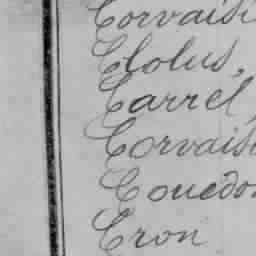 Corvaisi
Clolus,
Carrel,
Corvais
Couedo
Cron